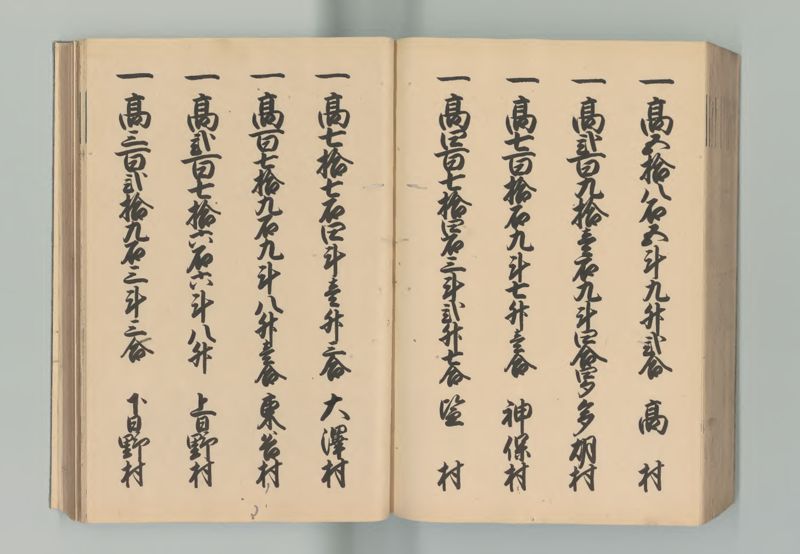 一高五拾八石五斗九升弐合 高村
一高弐百九拾壱石九斗四合四夕 多胡村
一高七百拾石九斗七升壱合 神保村
一高四百七拾四石三斗弐升七合 塩村
一高七拾七石四斗壱升三合 大澤村
一高百七拾九石九斗八升壱合 東谷村
一高弐百七拾六石六斗八升 上日野村
一高三百弐拾九石三斗三合 下日野村